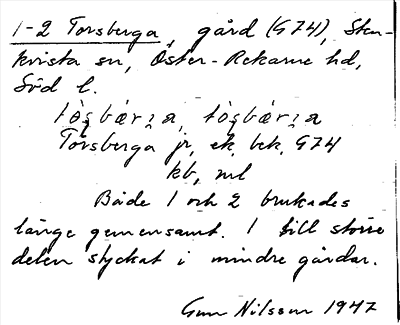 1-2 Torsberga, gård (G74), Sten-
kvista sn, Öster-Rekarne hd,
Söd l.
Torsberga jr, ek, bek, G74
kb, ml
Både 1 och 2 brukades
länge gemensamt. 1 till större
delen styckat i mindre gårdar.
Gun Nilsson 1947